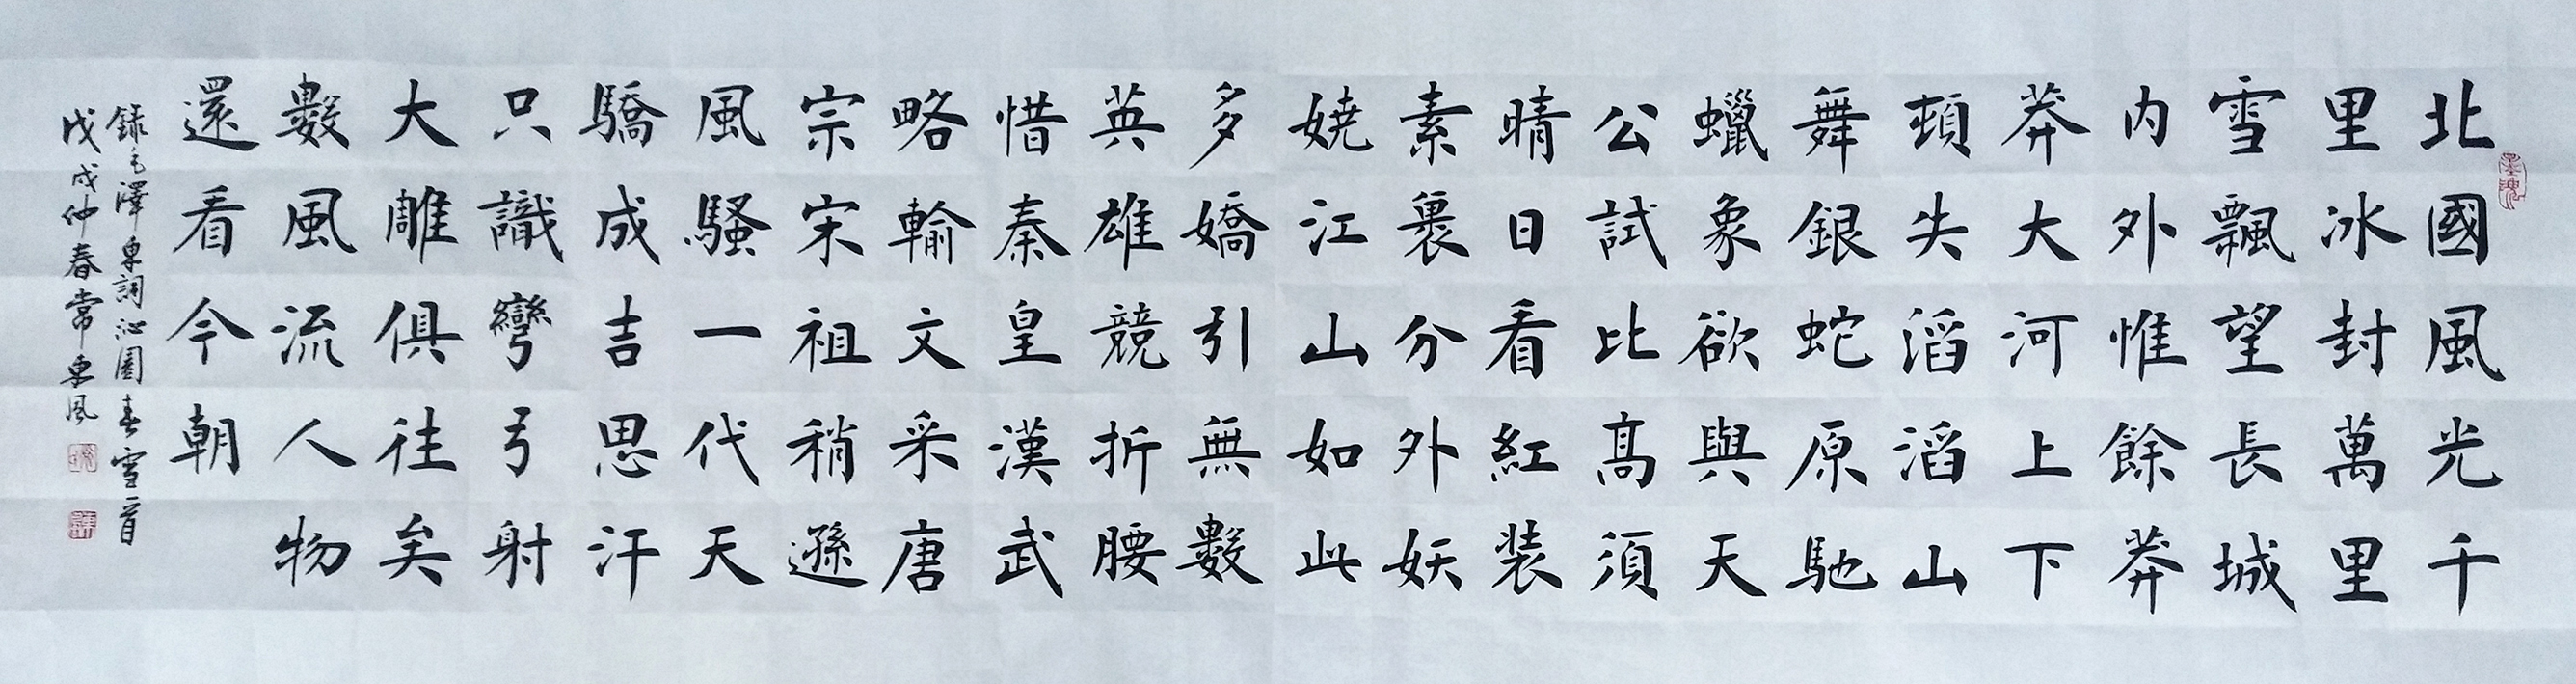 北國風光千
里冰封萬里
雪飄望長城
内外惟餘莽
莽大河上下
頓失滔滔山
舞銀蛇原馳
蠟象欲與天
公試比髙須
晴日看紅装
素裹分外妖
嬈江山如此
多嬌引無數
英雄競折腰
惜秦皇漢武
略輸文采唐
宗宋祖稍遜
風騷一代天
驕成吉思汗
只識彎弓射
大雕俱往矣
數風流人物
還看今朝
錄毛澤東詞沁園春雪一首
戊戌仲春常東風